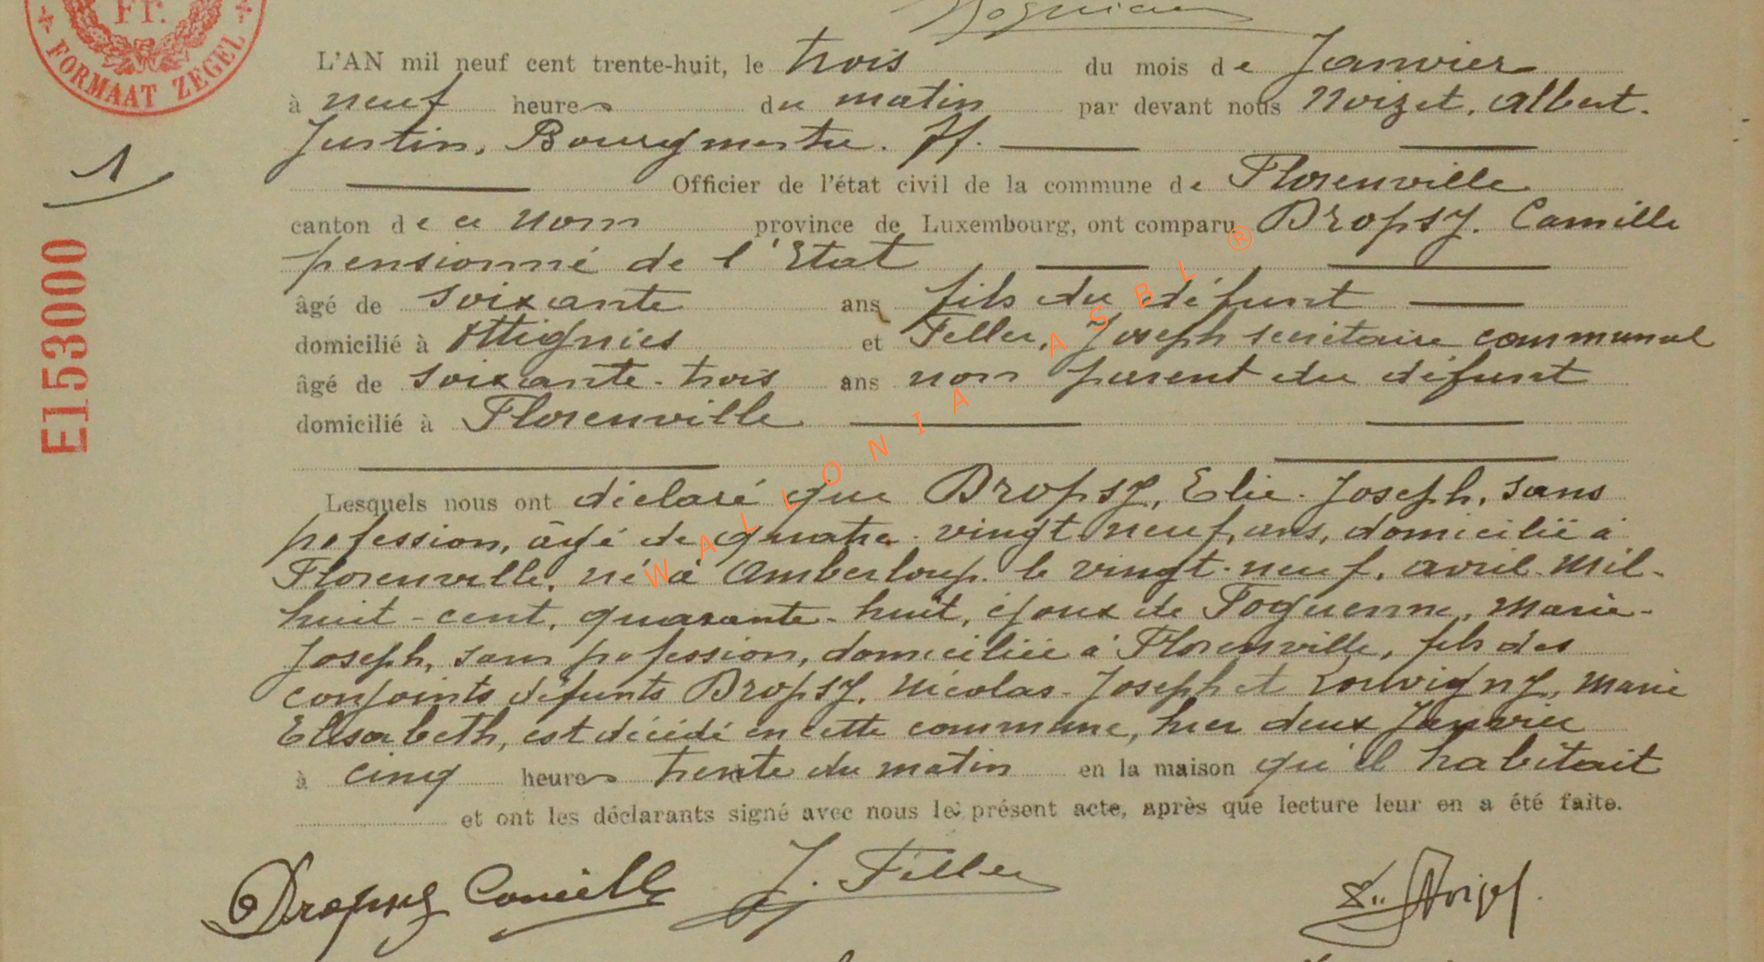 Fr.
FORMAAT ZEGEL
L'AN mil neuf cent trente-huit, le trois du mois de Janvier
à neuf heures du matin par devant nous Noizet, Albert.
Justin, Bourgmestre. ff.
1
Officier de l'état civil de la commune de Florenville
canton de ce nom province de Luxembourg, ont comparu Dropsy. Camille
pensionné de l'Etat
âgé de soixante ans fils du défunt
domicilié à Attignies et Feller, Joseph secrétaire communal
âgé de soixante-trois ans non parent du défunt
domicilié à Florenville
E153000
WALLONIA ASBL ®
Lesquels nous ont déclaré que Dropsy, Elie-Joseph, sans
profession, âgé de quatre-vingt neuf, ans, domicilié à
Florenville, né à Amberloup. le vingt-neuf. avril. mil-
huit-cent, quarante-huit, époux de Foguenne, Marie-
Joseph, sans profession, domiciliée à Florenville, fils des
conjoints défunts Dropsy, Nicolas-Joseph et Louvigny, Marie
Elisabeth, est décédé en cette commune, hier deux Janvier
à cinq heures trente du matin en la maison qu'il habitait
et ont les déclarants signé avec nous le présent acte, après que lecture leur en a été faite.
Dropsy Camille J. Feller